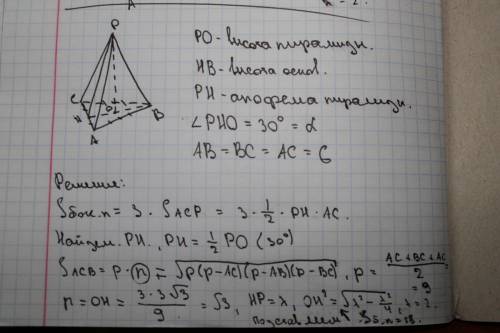 A
P
C
O
H
A
B
PO - висота пирамиди.
HB - висота основ.
PH - апофема пирамиди.
∠PHO = 30° = α
AB = BC = AC = 6
Решение:
Sбок.п = 3 · S ACP = 3 · 1/2 · PH · AC.
Найдем PH., PH = 1/2 PO (30°)
S ACB = p · п = √p(p-AC)(p-AB)(p-BC), p = (AC + BC + AC)/2 = 9
п = OH = 3·3√3/9 = √3, HP = x, OH² = √x² - x²/4, x = 2.
Подставим